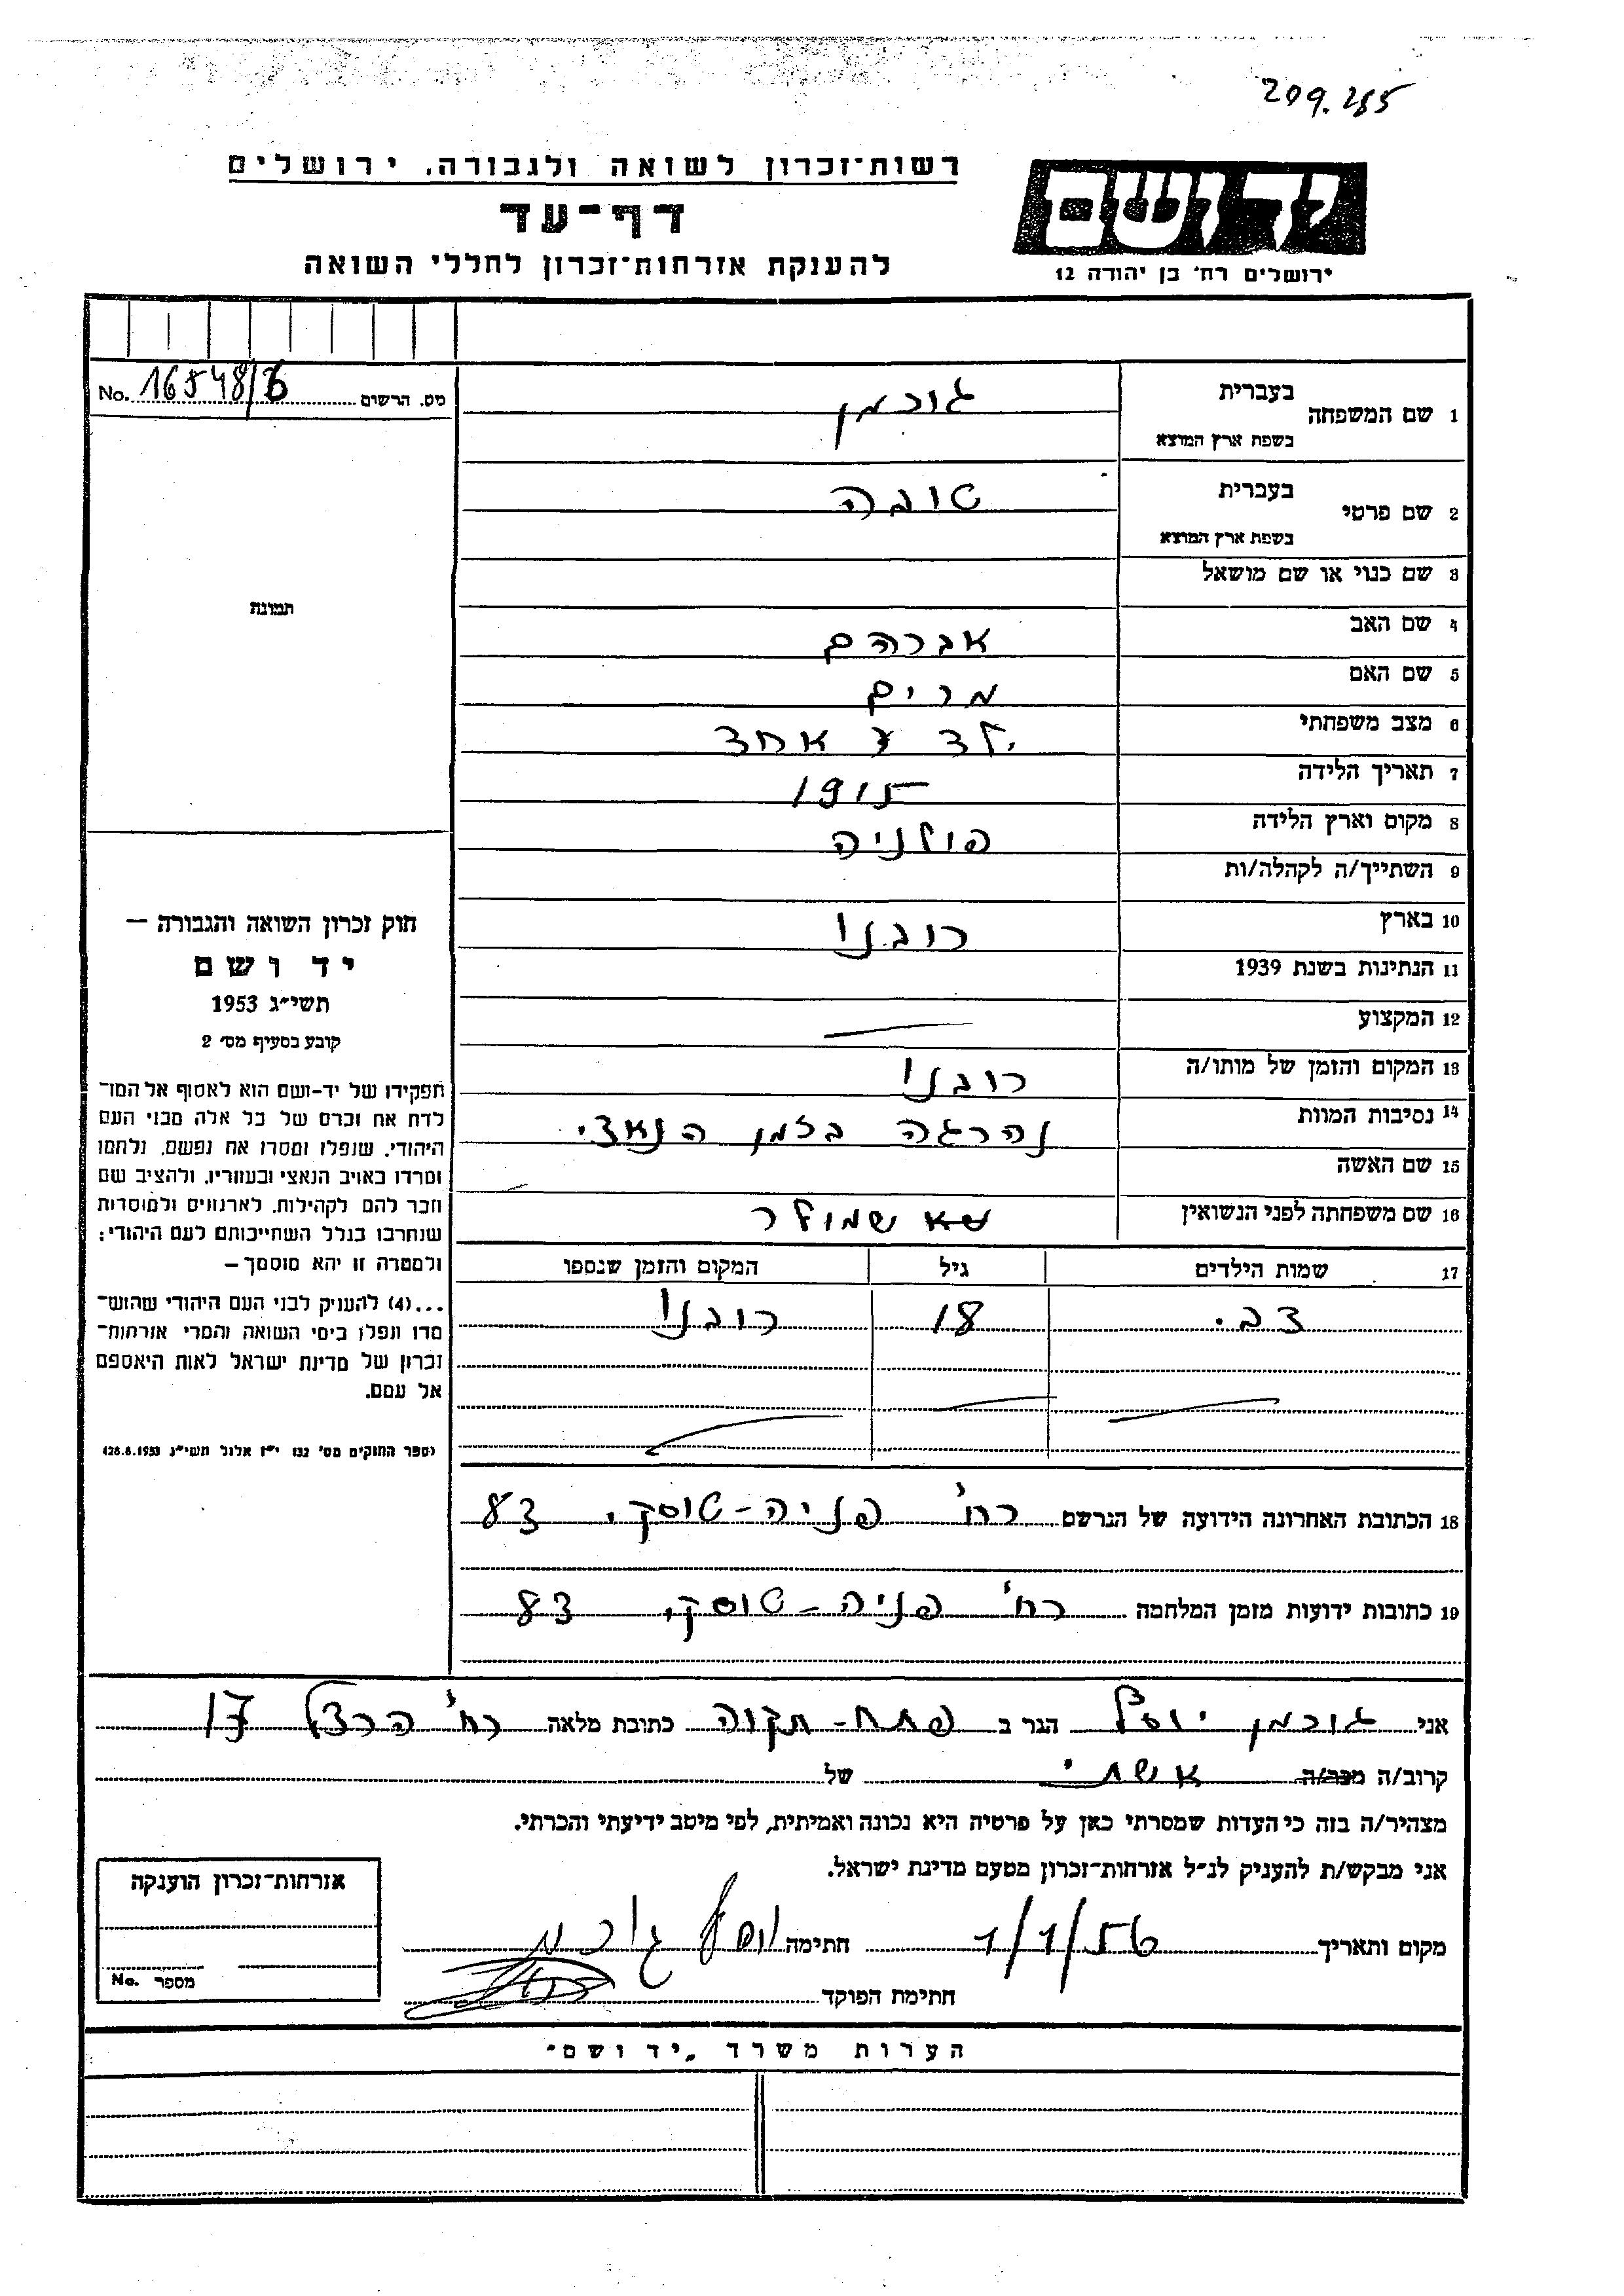 209.285
רשות־זכרון לשואה ולגבורה, ירושלים
דף־עד
להענקת אזרחות־זכרון לחללי השואה
יד ושם
ירושלים רח׳ בן יהודה 12
מס. הרשום No. 16548/6
תמונה
1 שם המשפחה בעברית גוכמן
בשפת ארץ המוצא
2 שם פרטי בעברית טובה
בשפת ארץ המוצא
3 שם כנוי או שם מושאל
4 שם האב אברהם
5 שם האם מרים
6 מצב משפחתי ילד אחד
7 תאריך הלידה 1915
8 מקום וארץ הלידה פולניה
9 השתייך/ה לקהלה/ות
10 בארץ רובנו
11 הנתינות בשנת 1939
12 המקצוע
13 המקום והזמן של מותו/ה רובנו
14 נסיבות המוות נהרגה בזמן הנאצי
15 שם האשה
16 שם משפחתה לפני הנשואין שמולר
17 שמות הילדים גיל המקום והזמן שנספו
צבי 18 רובנו
18 הכתובת האחרונה הידועה של הנרשם רח׳ פניה-טוסקי 83
19 כתובות ידועות מזמן המלחמה רח׳ פניה-טוסקי 83
חוק זכרון השואה והגבורה —
יד ושם
תשי״ג 1953
קובע בסעיף מס׳ 2
תפקידו של יד-ושם הוא לאסוף אל המו־
לדת את זכרם של כל אלה מבני העם
היהודי, שנפלו ומסרו את נפשם, נלחמו
ומרדו באויב הנאצי ובעוזריו, ולהציב שם
וזכר להם לקהילות, לארגונים ולמוסדות
שנחרבו בגלל השתייכותם לעם היהודי;
ולמטרה זו יהא מוסמך —
...(4) להעניק לבני העם היהודי שהוש־
מדו ונפלו בימי השואה והמרי אזרחות־
זכרון של מדינת ישראל לאות היאספם
אל עמם.
(ספר החוקים מס׳ 132 י״ז אלול תשי״ג 28.8.1953)
אני גוכמן יוסף הגר ב פתח-תקוה כתובת מלאה רח׳ הרצל 17
קרוב/ה מכר/ה אשתי של
מצהיר/ה בזה כי העדות שמסרתי כאן על פרטיה היא נכונה ואמיתית, לפי מיטב ידיעתי והכרתי.
אני מבקש/ת להעניק לנ״ל אזרחות־זכרון מטעם מדינת ישראל.
מקום ותאריך 1/1/56 חתימה יוסף גוכמן
חתימת הפוקד
אזרחות־זכרון הוענקה
מספר No.
הערות משרד „יד ושם״